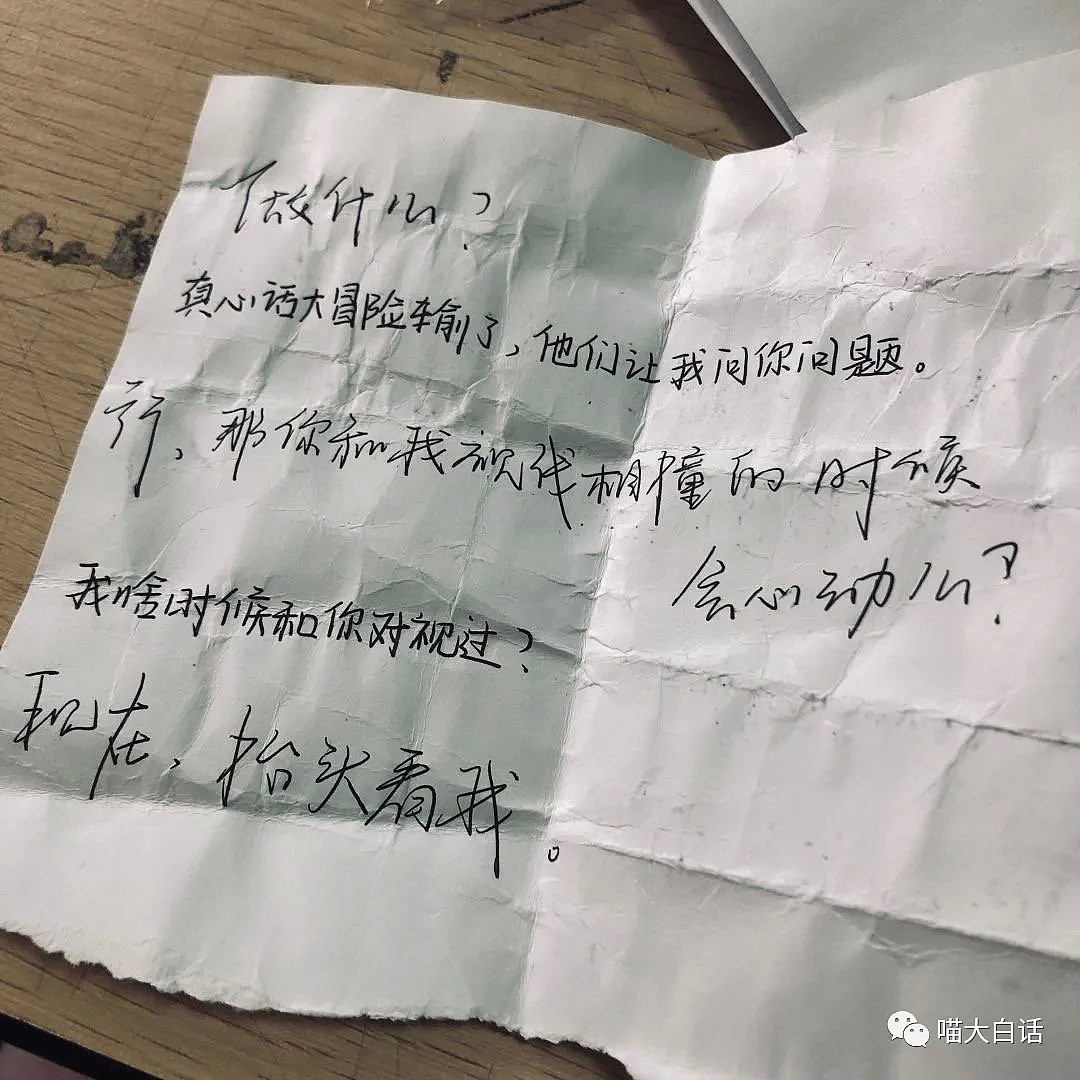 做什么？
真心话大冒险输了，他们让我问你问题。
行、那你和我视线相撞的时候
会心动么？
我啥时候和你对视过？
现在，抬头看我。
喵大白话